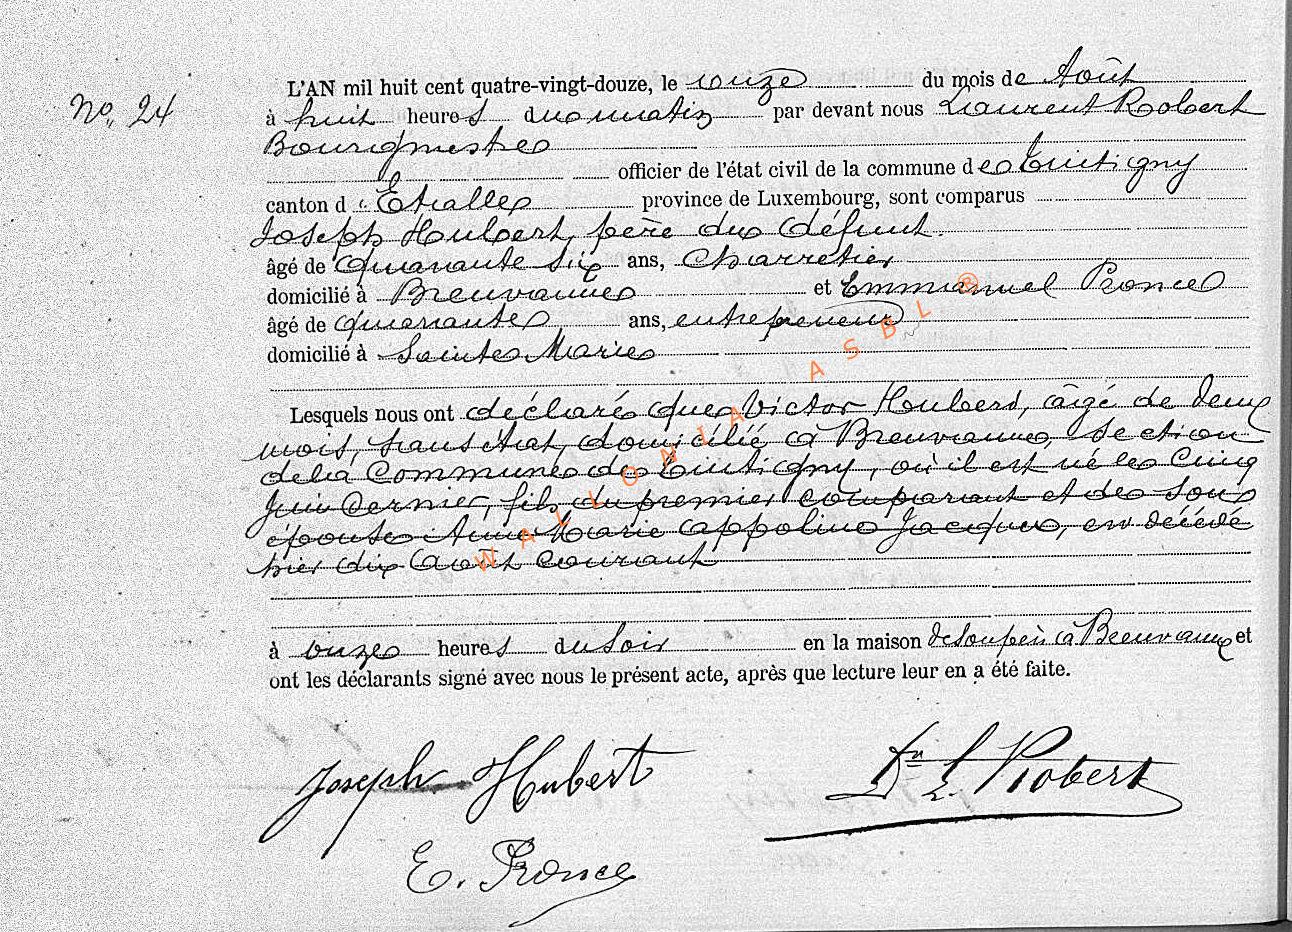 No. 24
L'AN mil huit cent quatre-vingt-douze, le onze du mois de Août
à huit heures du matin par devant nous Laurent Robert
Bourgmestre
officier de l'état civil de la commune de Tintigny
canton d'Etalle province de Luxembourg, sont comparus
Joseph Hubert, père du défunt
âgé de quarante six ans, charretier
domicilié à Breuvanne et Emmanuel Ponce
âgé de quarante ans, entrepreneur
domicilié à Sainte Marie
Lesquels nous ont déclaré que Victor Hubert, âgé de deux
mois, sans état, domicilié à Breuvanne, section
de la Commune de Tintigny, où il est né le cinq
Juin dernier, fils du premier comparant et de son
épouse Anne Marie Appoline Jacques, est décédé
hier dix Août courant
à onze heures du soir en la maison de son père à Breuvanne et
ont les déclarants signé avec nous le présent acte, après que lecture leur en a été faite.
Joseph Hubert
Dr L. Robert
E. Ponce
WALLONIA ASBL ®